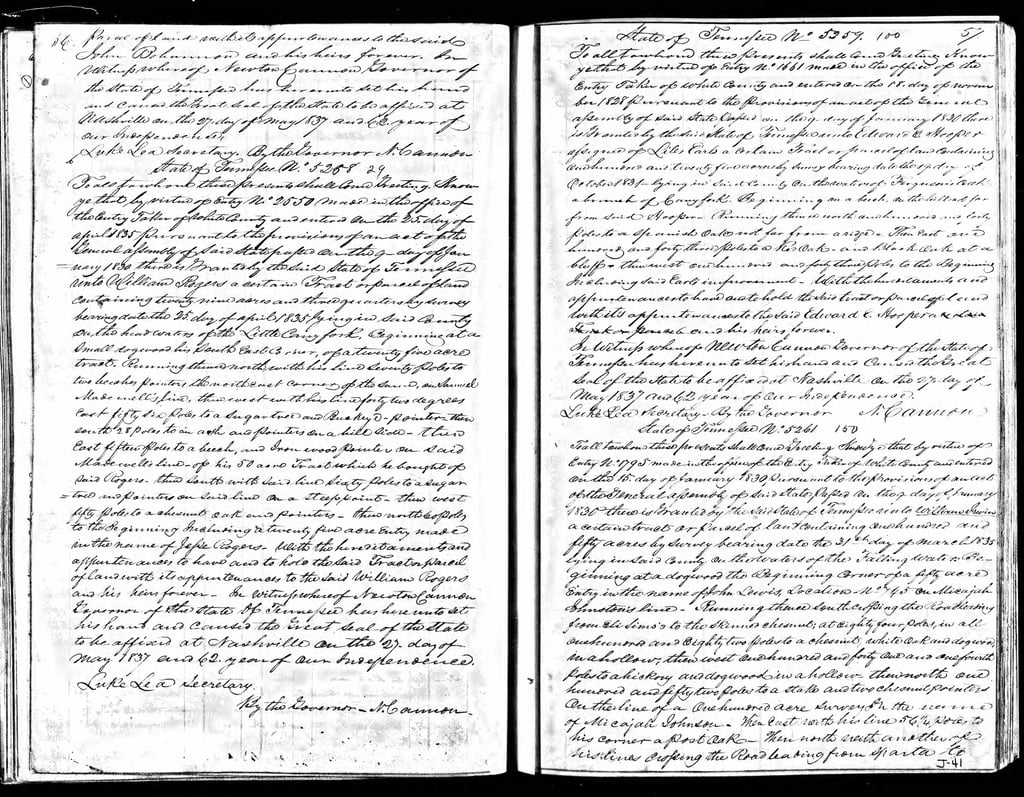 56.
parcel of land with its appurtenances to the said
John Bohannon and his heirs forever. In
Witness whereof Newton Cannon Governor of
the State of Tennessee has hereunto set his hand
and caused the Great Seal of the State to be affixed at
Nashville on the 27. day of May 1837 and 62. year of
our Independence
Luke Lea Secretary. By the Governor N. Cannon
State of Tennessee No. 5258
To all to whom these presents shall Come Greeting. Know
ye that by virtue of Entry No. 2550 made in the office of
the Entry Taker of White County and entered on the 25. day of
april 1835 Pursuant to the provisions of an act of the
General assembly of said State passed on the 9. day of Jan
uary 1830 there is Granted by the said State of Tennessee
unto William Rogers a certain Tract or parcel of land
containing twenty nine acres and three quarters by survey
bearing date the 25 day of april 1835 lying in said County
on the head waters of the Little Caney fork. Beginning at a
small dogwood his South East Corner, of a twenty five acre
tract. Running thence north with his line seventy Poles to
two beeches pointers the north east corner of the same, on Samuel
Madewell's line, then west with his line forty two degrees
East fifty six Poles to a Sugar tree and Buckeye pointer then
south 28 poles to an ash and pointers on a hill side - then
East fifteen Poles to a beech, and Iron wood pointer on said
Madewells line - of his 50 acre Tract which he bought of
said Rogers - then South with said line Sixty Poles to a sugar
tree and pointers on said line on a steep point - then west
fifty Poles to a chesnut Oak and pointers - then north 60 poles
to the Beginning Including a twenty five acre Entry made
in the name of Jesse Rogers. With the hereditaments and
appurtenances to have and to hold the said Tract or parcel
of land with its appurtenances to the said William Rogers
and his heirs forever - In Witness whereof Newton Cannon
Governor of the State of Tennessee has hereunto set
his hand and caused the Great Seal of the State
to be affixed at Nashville on the 27. day of
May 1837 and 62. year of Our Independence.
Luke Lea Secretary
By the Governor - N. Cannon -
State of Tennessee No. 5259. 100 57
To all to whom these Presents shall Come Greeting Know
ye that by virtue of Entry No. 1661 made in the office of the
Entry Taker of White County and entered on the 18. day of novem
ber 1828 Pursuant to the Provisions of an act of the General
assembly of said State Passed on the 9. day of January 1830 there
is Granted by the said State of Tennessee unto Edward E. Hooper
assignee of Liles Earls a certain Tract or parcel of land Containing
one hundred and twenty five acres by survey bearing date the day of
October 1831 lying in said County on the waters of
a branch of Caney fork Beginning on a beech, on the hill not far
from said Hooper Running thence north one hundred and forty
Poles to a Spanish Oak not far from a ridge - Then East one
hundred and forty three Poles to a Red Oak - and black Oak at a
bluff - then west one hundred and forty three Poles to the Beginning
Including said Earls improvement - With the hereditaments and
appurtenances to have and to hold the said tract or parcel of land
with its appurtenances to the said Edward E. Hooper
and his heirs, forever.
In Witness whereof Newton Cannon Governor of the State of
Tennessee has hereunto set his hand and Caused the Great
Seal of the State to be affixed at Nashville on the 27. day of
May 1837 and 62 year of our Independence.
Luke Lea Secretary - By the Governor N. Cannon
State of Tennessee No. 5261 150
To all to whom these presents shall Come Greeting Know ye that by virtue of
Entry No. 1795 made in the office of the Entry Taker of White County and entered
on the 15. day of January 1830 Pursuant to the Provisions of an act
of the General assembly of said State, Passed on the 9. day of January
1830 there is Granted by the said State of Tennessee unto William
a certain tract or Parcel of land Containing One hundred and
fifty acres by survey bearing date the 31st day of March 1835
lying in said County on the waters of the Falling Water Be-
ginning at a dogwood the Beginning Corner of a fifty acre
Entry in the name of John Lewis, Location No. 745 on Micajah
Johnstons line - Running thence South crossing the Road leading
from to the Skinned chesnut, at Eighty four, poles, in all
one hundred and Eighty two poles to a chesnut, white Oak and dogwood,
in a hollow, then west one hundred and forty one and one fourth
Poles to a hickory and dogwood in a hollow - then north one
hundred and fifty two poles to a stake and two chesnut pointers
on the line of a One hundred acre survey In the name
of Micajah Johnson - Then East with his line 56 ½ poles to
his corner a Post Oak - Then north with another of
his lines crossing the Road leading from Sparta to
J-41